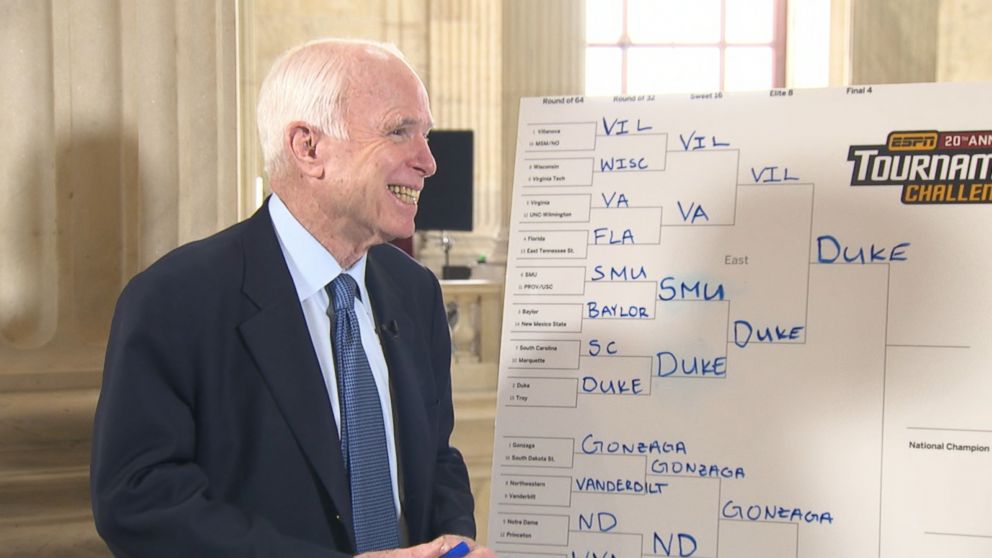 Round of 64 Round of 32 Sweet 16 Elite 8 Final 4
ESPN 20TH ANN
TOURNAM
CHALLEN
1 Villanova
16 MSM/NO
VIL
VIL
8 Wisconsin
9 Virginia Tech
WISC
VIL
5 Virginia
12 UNC-Wilmington
VA
VA
4 Florida
13 East Tennessee St.
FLA
East
DUKE
6 SMU
11 PROV/USC
SMU
SMU
3 Baylor
14 New Mexico State
BAYLOR
DUKE
7 South Carolina
10 Marquette
SC
DUKE
2 Duke
15 Troy
DUKE
1 Gonzaga
16 South Dakota St.
GONZAGA
GONZAGA
8 Northwestern
9 Vanderbilt
VANDERBILT
GONZAGA
5 Notre Dame
12 Princeton
ND
ND
National Champion